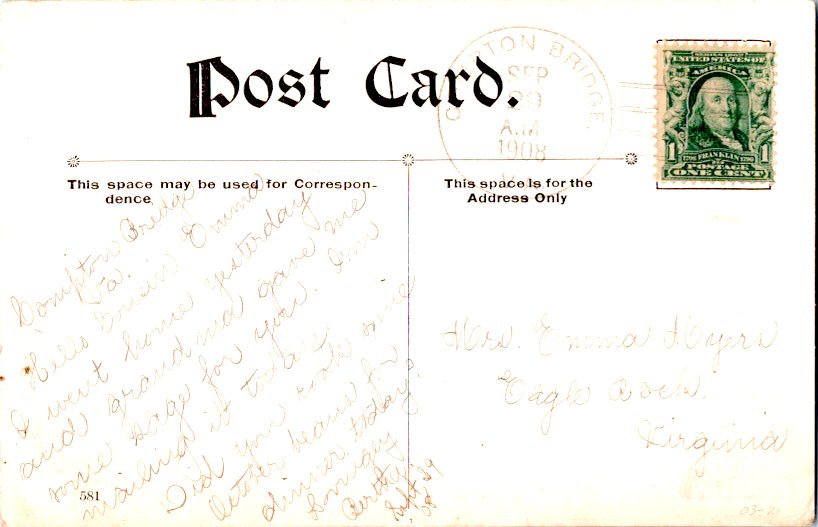 Post Card.
COMPTON BRIDGE,
SEP
29
A.M
1908
VA.
SERIES 1902
UNITED STATES OF
AMERICA
1706 FRANKLIN 1790
1 POSTAGE 1
ONE CENT
This space may be used for Correspon-
dence
This space is for the
Address Only
Compton Bridge
Va.
Hello Cousin Emma
I went home yesterday
and grandma gave me
some sage for you. Im
mailing it today.
Did you cook some
October beans for
dinner today?
Bertha
Sept 29
08
Mrs. Emma Myers
Eagle Rock.
Virginia
581